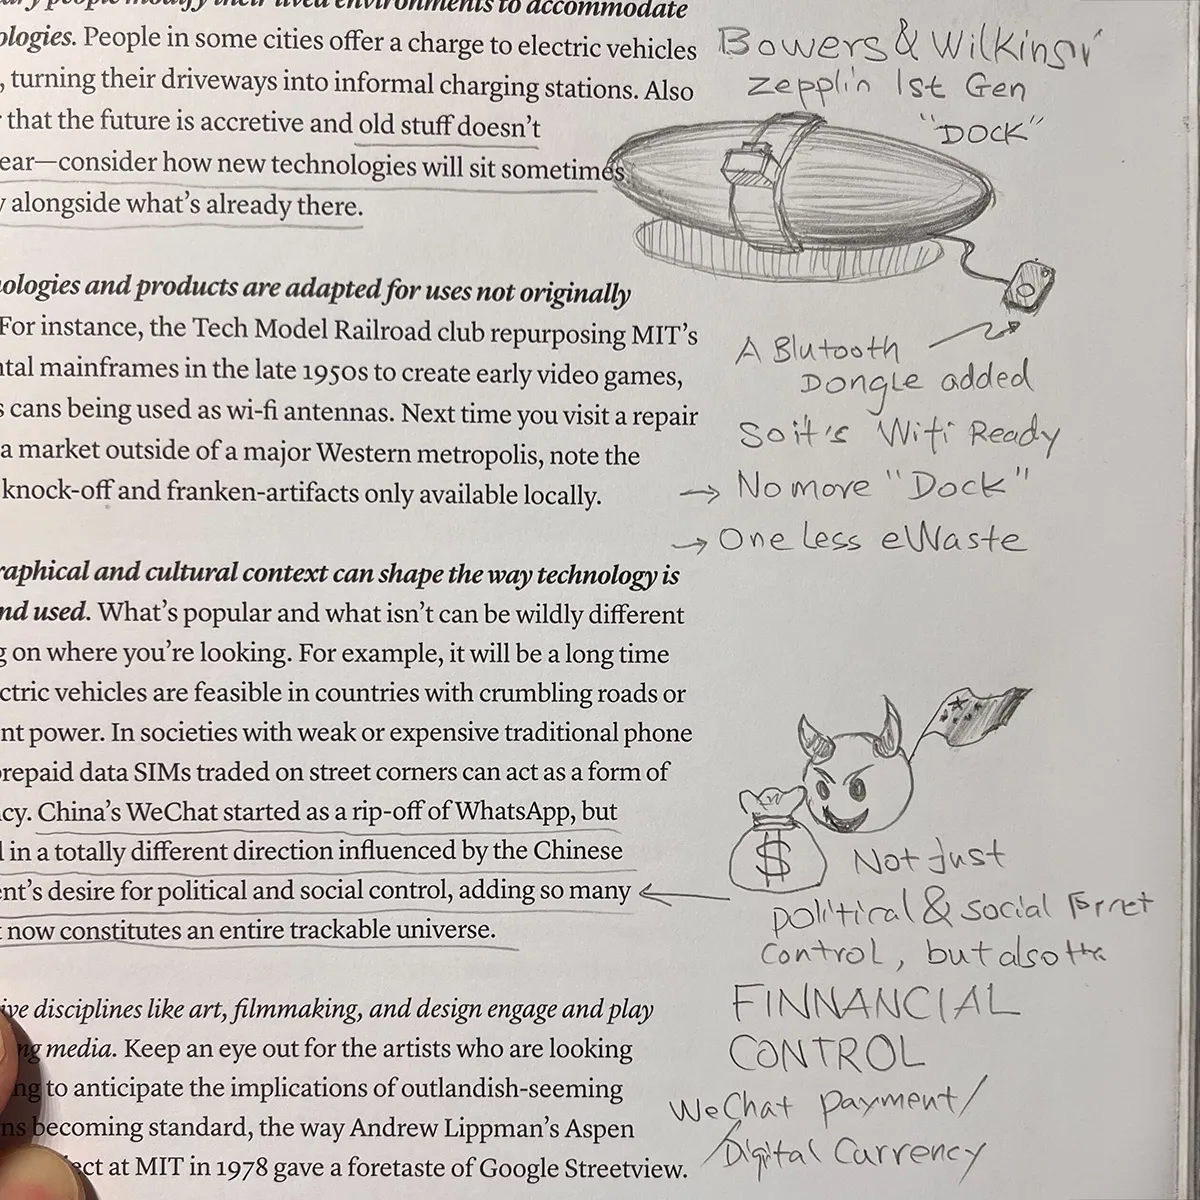 people modify their lived environments to accommodate
ologies. People in some cities offer a charge to electric vehicles
, turning their driveways into informal charging stations. Also
that the future is accretive and old stuff doesn't
ear—consider how new technologies will sit sometimes
y alongside what's already there.
ologies and products are adapted for uses not originally
For instance, the Tech Model Railroad club repurposing MIT's
ntal mainframes in the late 1950s to create early video games,
s cans being used as wi-fi antennas. Next time you visit a repair
a market outside of a major Western metropolis, note the
knock-off and franken-artifacts only available locally.
raphical and cultural context can shape the way technology is
nd used. What's popular and what isn't can be wildly different
g on where you're looking. For example, it will be a long time
ctric vehicles are feasible in countries with crumbling roads or
nt power. In societies with weak or expensive traditional phone
prepaid data SIMs traded on street corners can act as a form of
cy. China's WeChat started as a rip-off of WhatsApp, but
l in a totally different direction influenced by the Chinese
ent's desire for political and social control, adding so many
t now constitutes an entire trackable universe.
ive disciplines like art, filmmaking, and design engage and play
ng media. Keep an eye out for the artists who are looking
ng to anticipate the implications of outlandish-seeming
ns becoming standard, the way Andrew Lippman's Aspen
ect at MIT in 1978 gave a foretaste of Google Streetview.
Bowers & Wilkins
Zepplin 1st Gen
"DOCK"
A Blutooth
Dongle added
So it's Wifi Ready
→ No more "Dock"
→ One Less eWaste
$
Not Just
political & social
Control, but also
FINNANCIAL
CONTROL
WeChat payment/
/Digital Currency